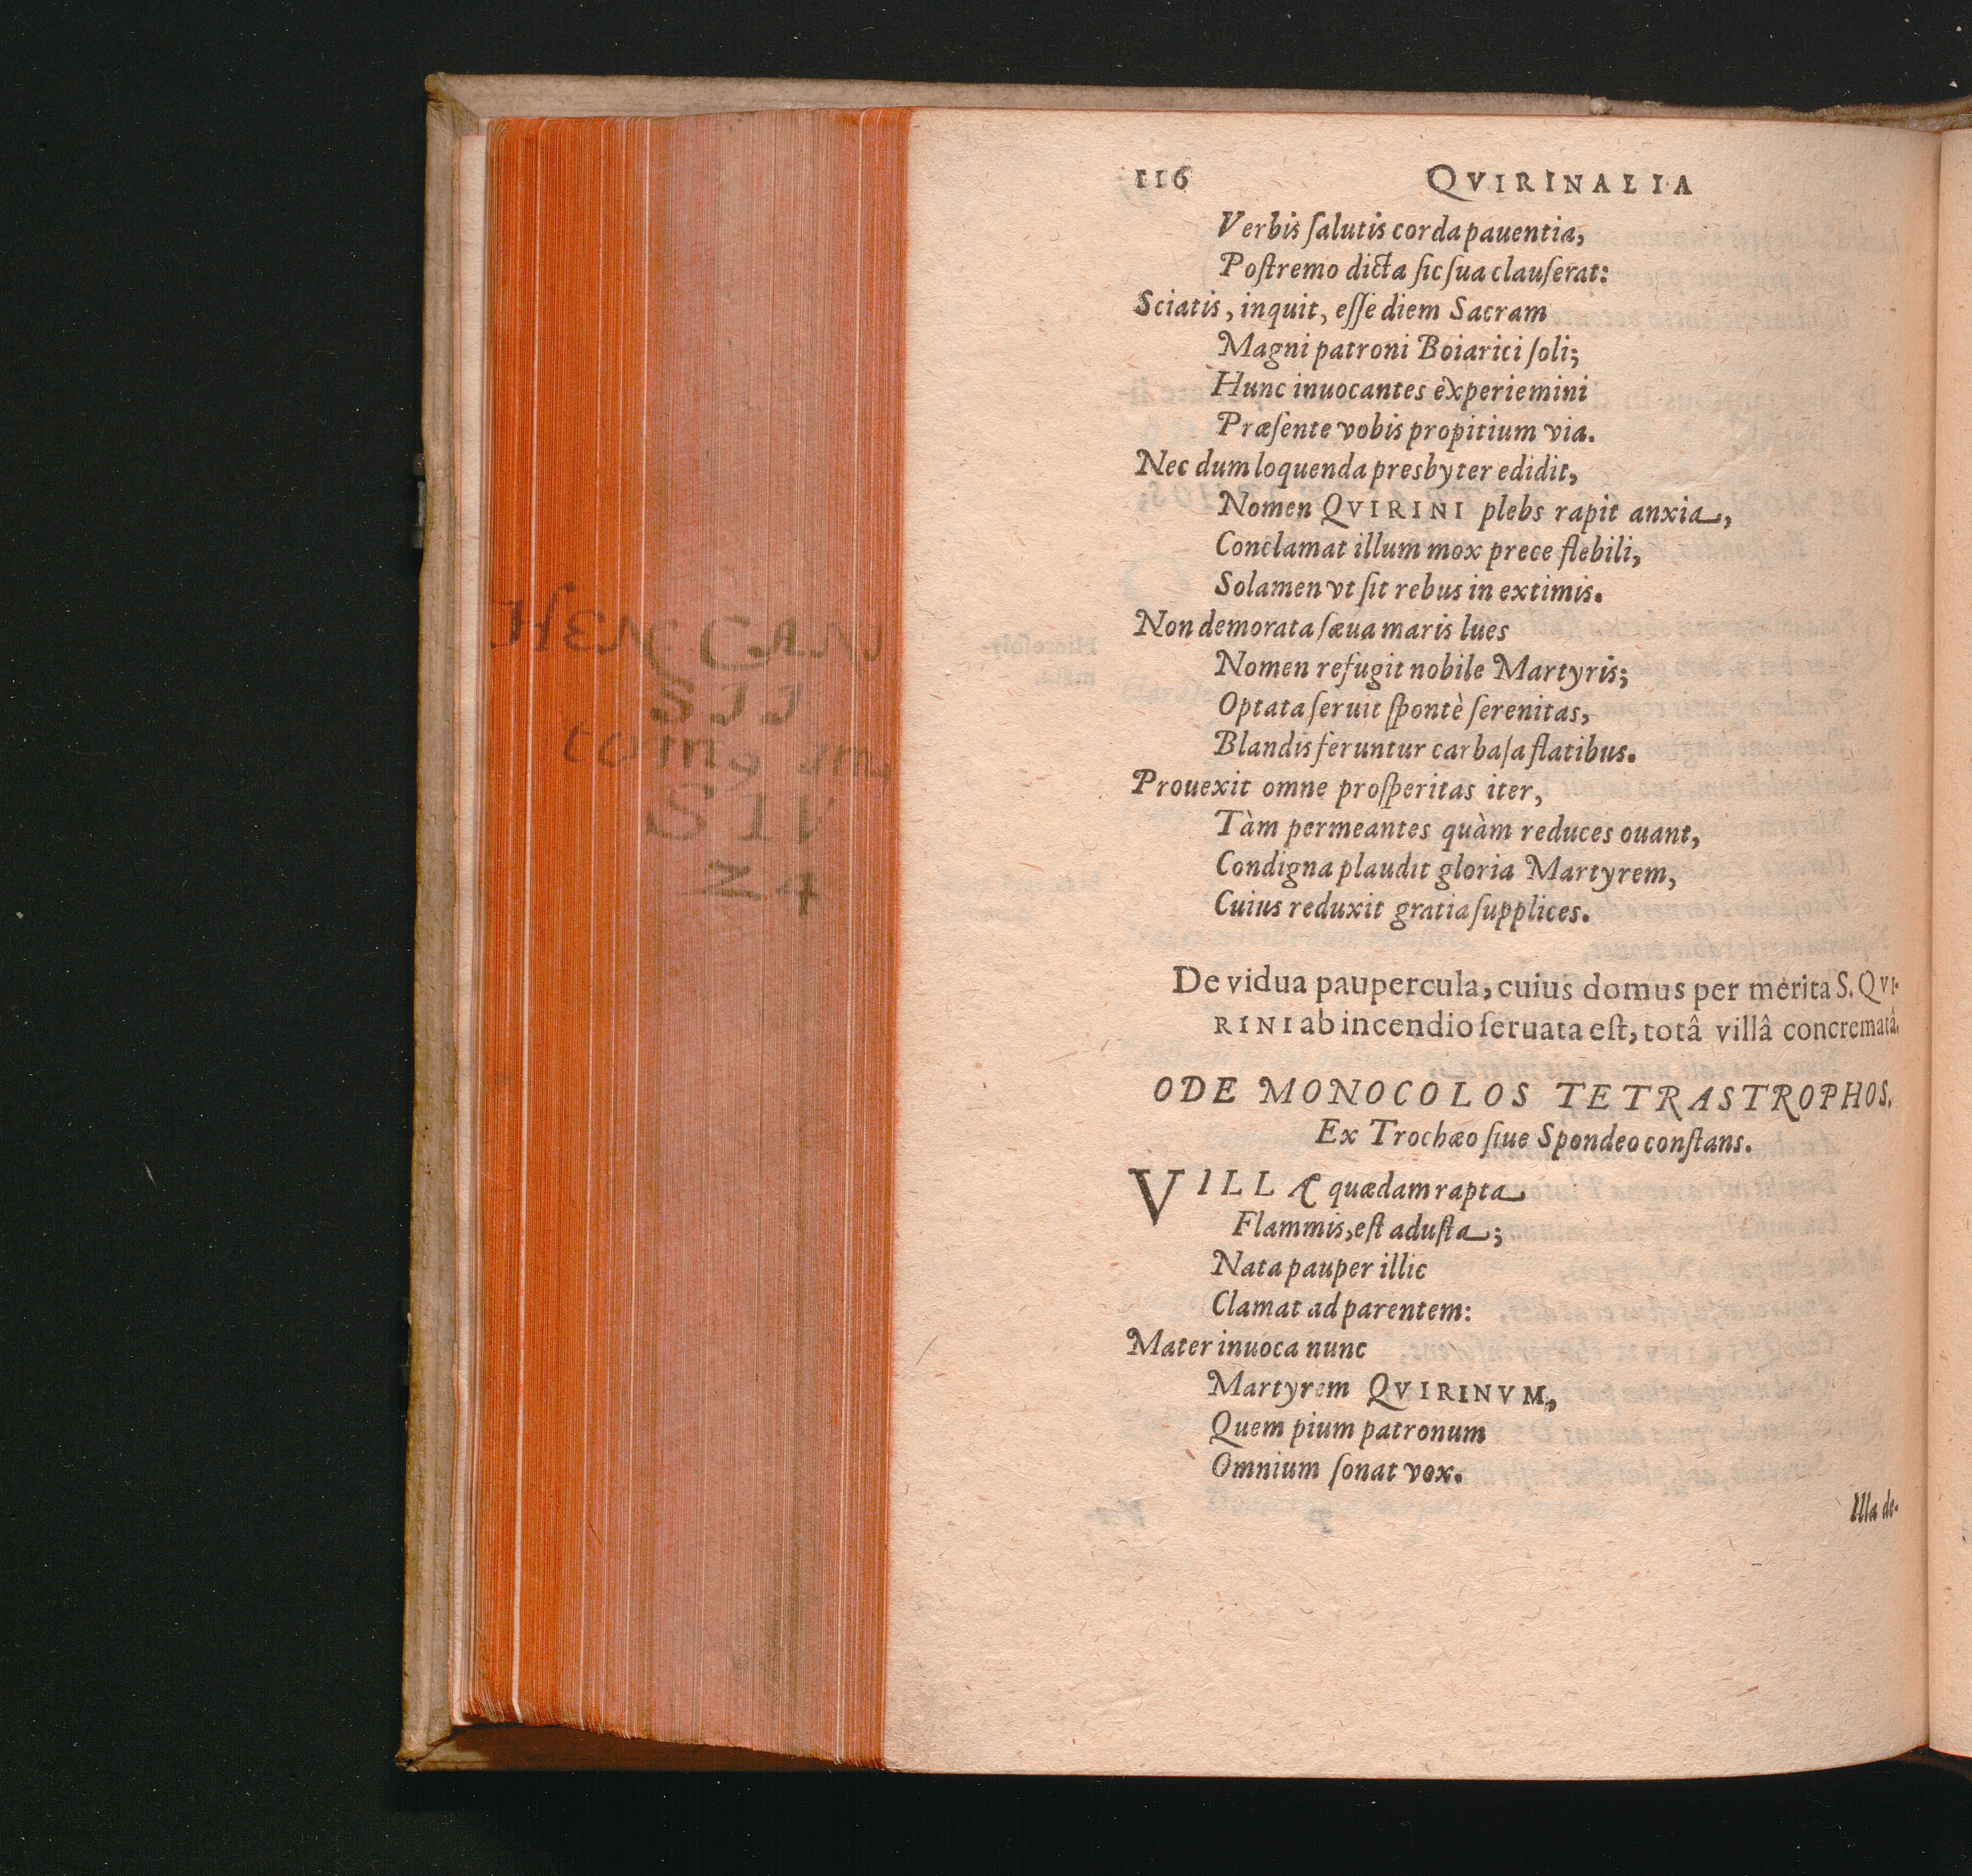 116 QVIRINALIA
Verbis ſalutis corda pauentia,
Poſtremo dicta ſic ſua clauſerat:
Sciatis, inquit, eſſe diem Sacram
Magni patroni Boiarici ſoli;
Hunc inuocantes experiemini
Præſente vobis propitium via.
Nec dum loquenda presbyter edidit,
Nomen QVIRINI plebs rapit anxia,
Conclamat illum mox prece flebili,
Solamen vt ſit rebus in extimis.
Non demorata ſæua maris lues
Nomen refugit nobile Martyris;
Optata ſeruit ſpontè ſerenitas,
Blandis feruntur carbaſa flatibus.
Prouexit omne proſperitas iter,
Tàm permeantes quàm reduces ouant,
Condigna plaudit gloria Martyrem,
Cuius reduxit gratia ſupplices.
De vidua paupercula, cuius domus per merita S. QVI-
RINI ab incendio ſeruata eſt, totâ villâ concrematâ.
ODE MONOCOLOS TETRASTROPHOS.
Ex Trochæo ſiue Spondeo conſtans.
VILLÆ quædam rapta
Flammis, eſt aduſta;
Nata pauper illic
Clamat ad parentem:
Mater inuoca nunc
Martyrem QVIRINVM,
Quem pium patronum
Omnium ſonat vox.
Illa de-
HEN. CAN
SII